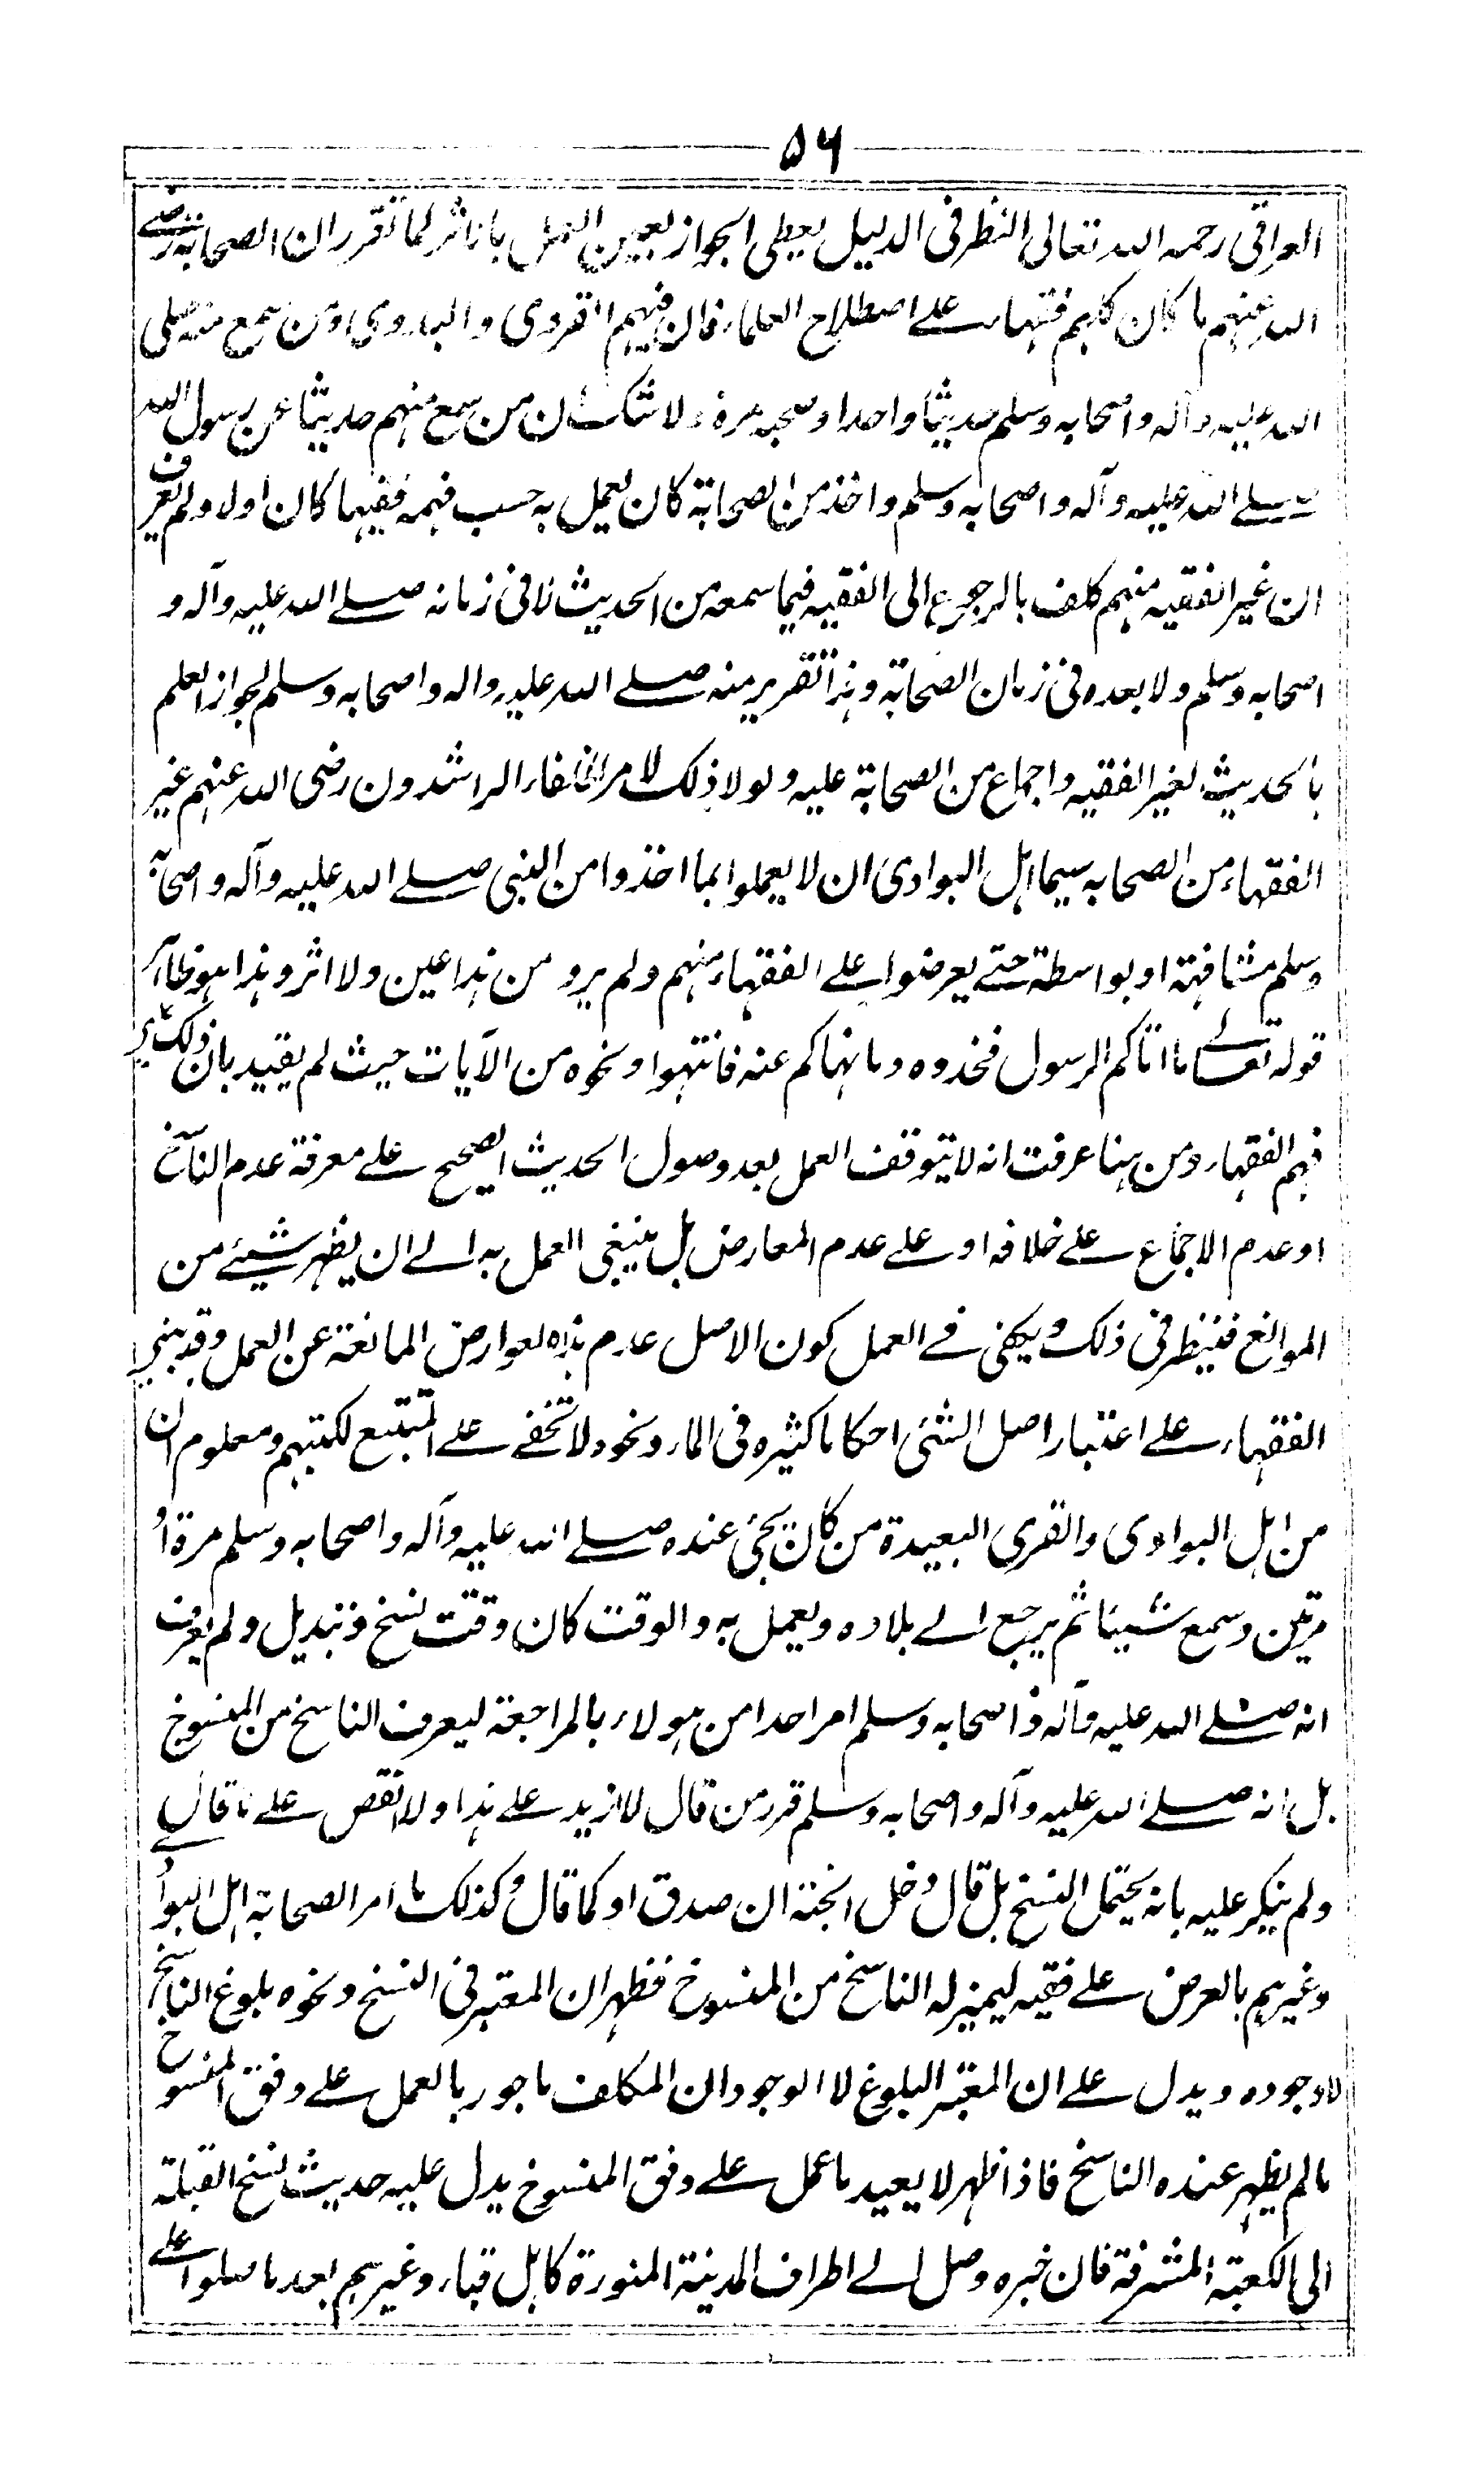 ٥٦
العراقى رحمه الله تعالى النظر فى الدليل يعطى الجواز بعين العمل باناثر لما تقرر ان الصحابة رضے
الله عنهم ما كان كلهم فقهاء علے اصطلاح العلماء فان فيهم القروى والبدوى ومن سمع منه صلى
الله عليه وآله واصحابه وسلم حديثا واحدا وصحبه مرة ولا شك ان من سمع منهم حديثا عن رسول الله
صلے الله عليه وآله واصحابه وسلم واخذ من الصحابة كان يعمل به حسب فهمه فقيها كان اولا ولم يعرف
ان غير الفقيه منهم كلف بالرجوع الى الفقيه فيما سمعه من الحديث لا فى زمانه صلے الله عليه وآله و
اصحابه وسلم ولا بعده فى زمان الصحابة وهذا تقرير منه صلے الله عليه واله واصحابه وسلم لجواز العلم
بالحديث لغير الفقيه واجماع من الصحابة عليه ولولا ذلك لامر الخلفاء الراشدون رضى الله عنهم غير
الفقهاء من الصحابه سيما اهل البوادى ان لا يعملوا بما اخذوا من النبى صلے الله عليه وآله واصحابه
وسلم مشافهة او بواسطة حتے يعرضوا علے الفقهاء منهم ولم يرو من هذا عين ولا اثر وهذا هو ظاهر
قوله تعالے ما اتاكم الرسول فخذوه وما نهاكم عنه فانتهوا ونحوه من الآيات حيث لم يقيد بان ذلك علے
فهم الفقهاء ومن هنا عرفت انه لا يتوقف العمل بعد وصول الحديث الصحيح علے معرفة عدم الناسخ
او عدم الاجماع علے خلافه او علے عدم المعارض بل ينبغى العمل به الے ان يظهر شيئے من
الموانع فينظر فى ذلك ويكفى فے العمل كون الاصل عدم هذه العوارض المانعة عن العمل وقد بنى
الفقهاء علے اعتبار اصل الشئ احكاما كثيره فى الماء ونحوه لا تخفے علے المتتبع لكتبهم ومعلوم ان
من اهل البوادى والقرى البعيدة من كان يجئ عنده صلے الله عليه وآله واصحابه وسلم مرة او
مرتين وسمع شيئا ثم يرجع الے بلاده ويعمل به والوقت كان وقت نسخ وتبديل ولم يعرف
انه صلے الله عليه وآله واصحابه وسلم امر احدا من هولاء بالمراجعة ليعرف الناسخ من المنسوخ
بل انه صلے الله عليه وآله واصحابه وسلم قرر من قال لا ازيد علے هذا ولا انقص علے ما قال
ولم ينكر عليه بانه يحتمل النسخ بل قال دخل الجنة ان صدق او كما قال وكذلك ما امر الصحابة اهل البوا
وغيرهم بالعرض علے فقيه ليميز له الناسخ من المنسوخ فظهر ان المعتبر فى النسخ ونحوه بلوغ الناسخ
لا وجوده ويدل علے ان المعتبر البلوغ لا الوجود ان المكلف ماجور بالعمل علے وفق المنسوخ
ما لم يظهر عنده الناسخ فاذا ظهر لا يعيد ما عمل علے وفق المنسوخ يدل عليه حديث نسخ القبلة
الى الكعبة المشرفة فان خبره وصل الے اطراف المدينة المنورة كاهل قباء وغيرهم بعد ما صلوا علے